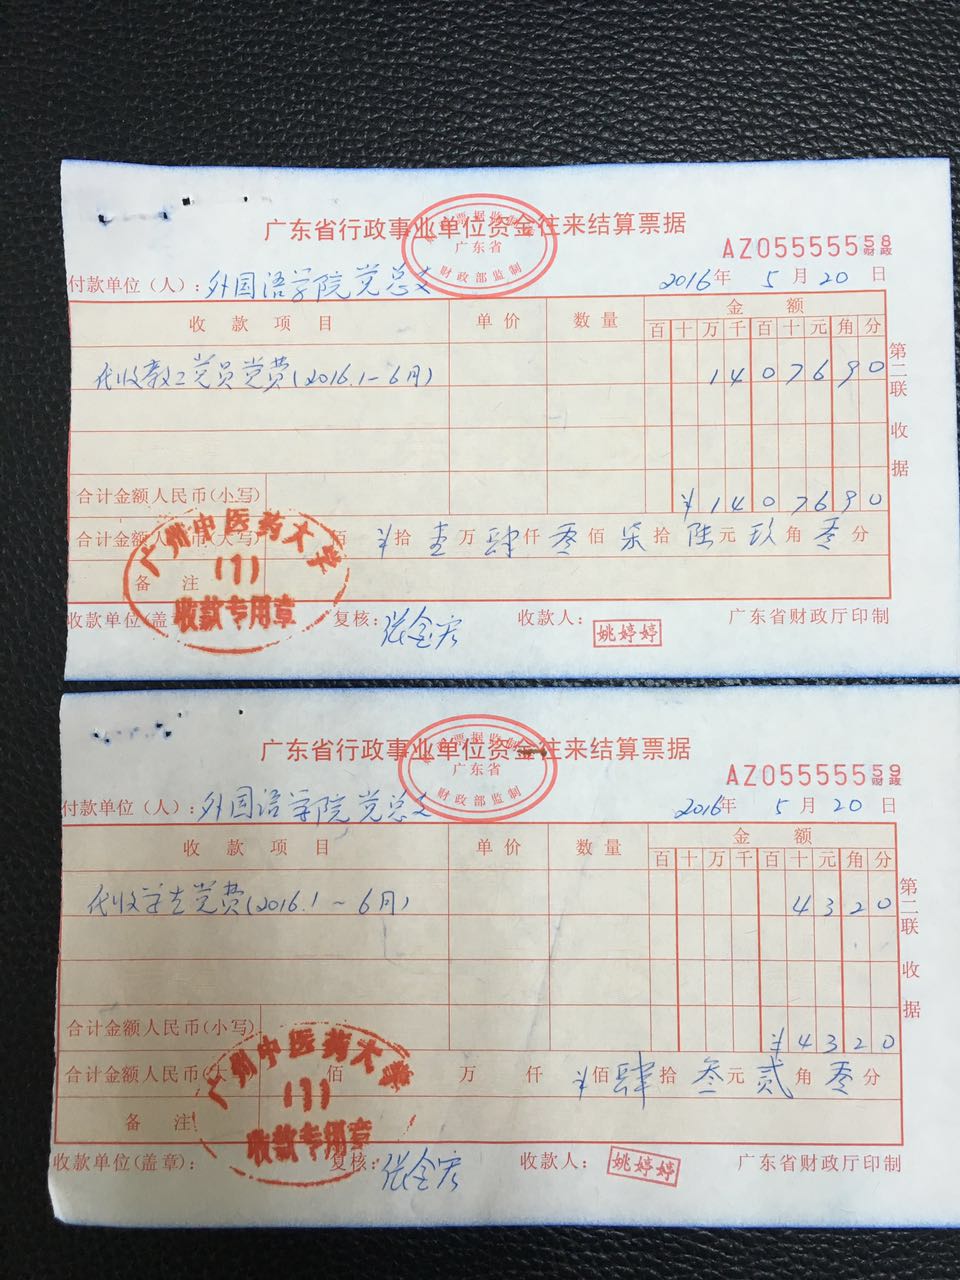 广东省行政事业单位资金往来结算票据
财政票据监制
广东省
财政部监制
AZ05555558
财政
付款单位（人）：外国语学院党总支 2016年 5月 20日
收款项目 单价 数量 金额
百 十 万 千 百 十 元 角 分
代收教工党员党费(2016.1-6月) 1 4 0 7 6 9 0
第二联 收据
合计金额人民币(小写) ¥ 1 4 0 7 6 9 0
合计金额人民币(大写) 佰 ¥拾 壹万 肆仟 零佰 柒拾 陆元 玖角 零分
备注
广州中医药大学
(1)
收款专用章
收款单位(盖章)： 复核：张金宏 收款人：姚婷婷 广东省财政厅印制
广东省行政事业单位资金往来结算票据
财政票据监制
广东省
财政部监制
AZ05555559
财政
付款单位（人）：外国语学院党总支 2016年 5月 20日
收款项目 单价 数量 金额
百 十 万 千 百 十 元 角 分
代收学生党费(2016.1~6月) 4 3 2 0
第二联 收据
合计金额人民币(小写) ¥ 4 3 2 0
合计金额人民币(大写) 佰 万 仟 ¥佰 肆拾 叁元 贰角 零分
备注
广州中医药大学
(1)
收款专用章
收款单位(盖章)： 复核：张金宏 收款人：姚婷婷 广东省财政厅印制